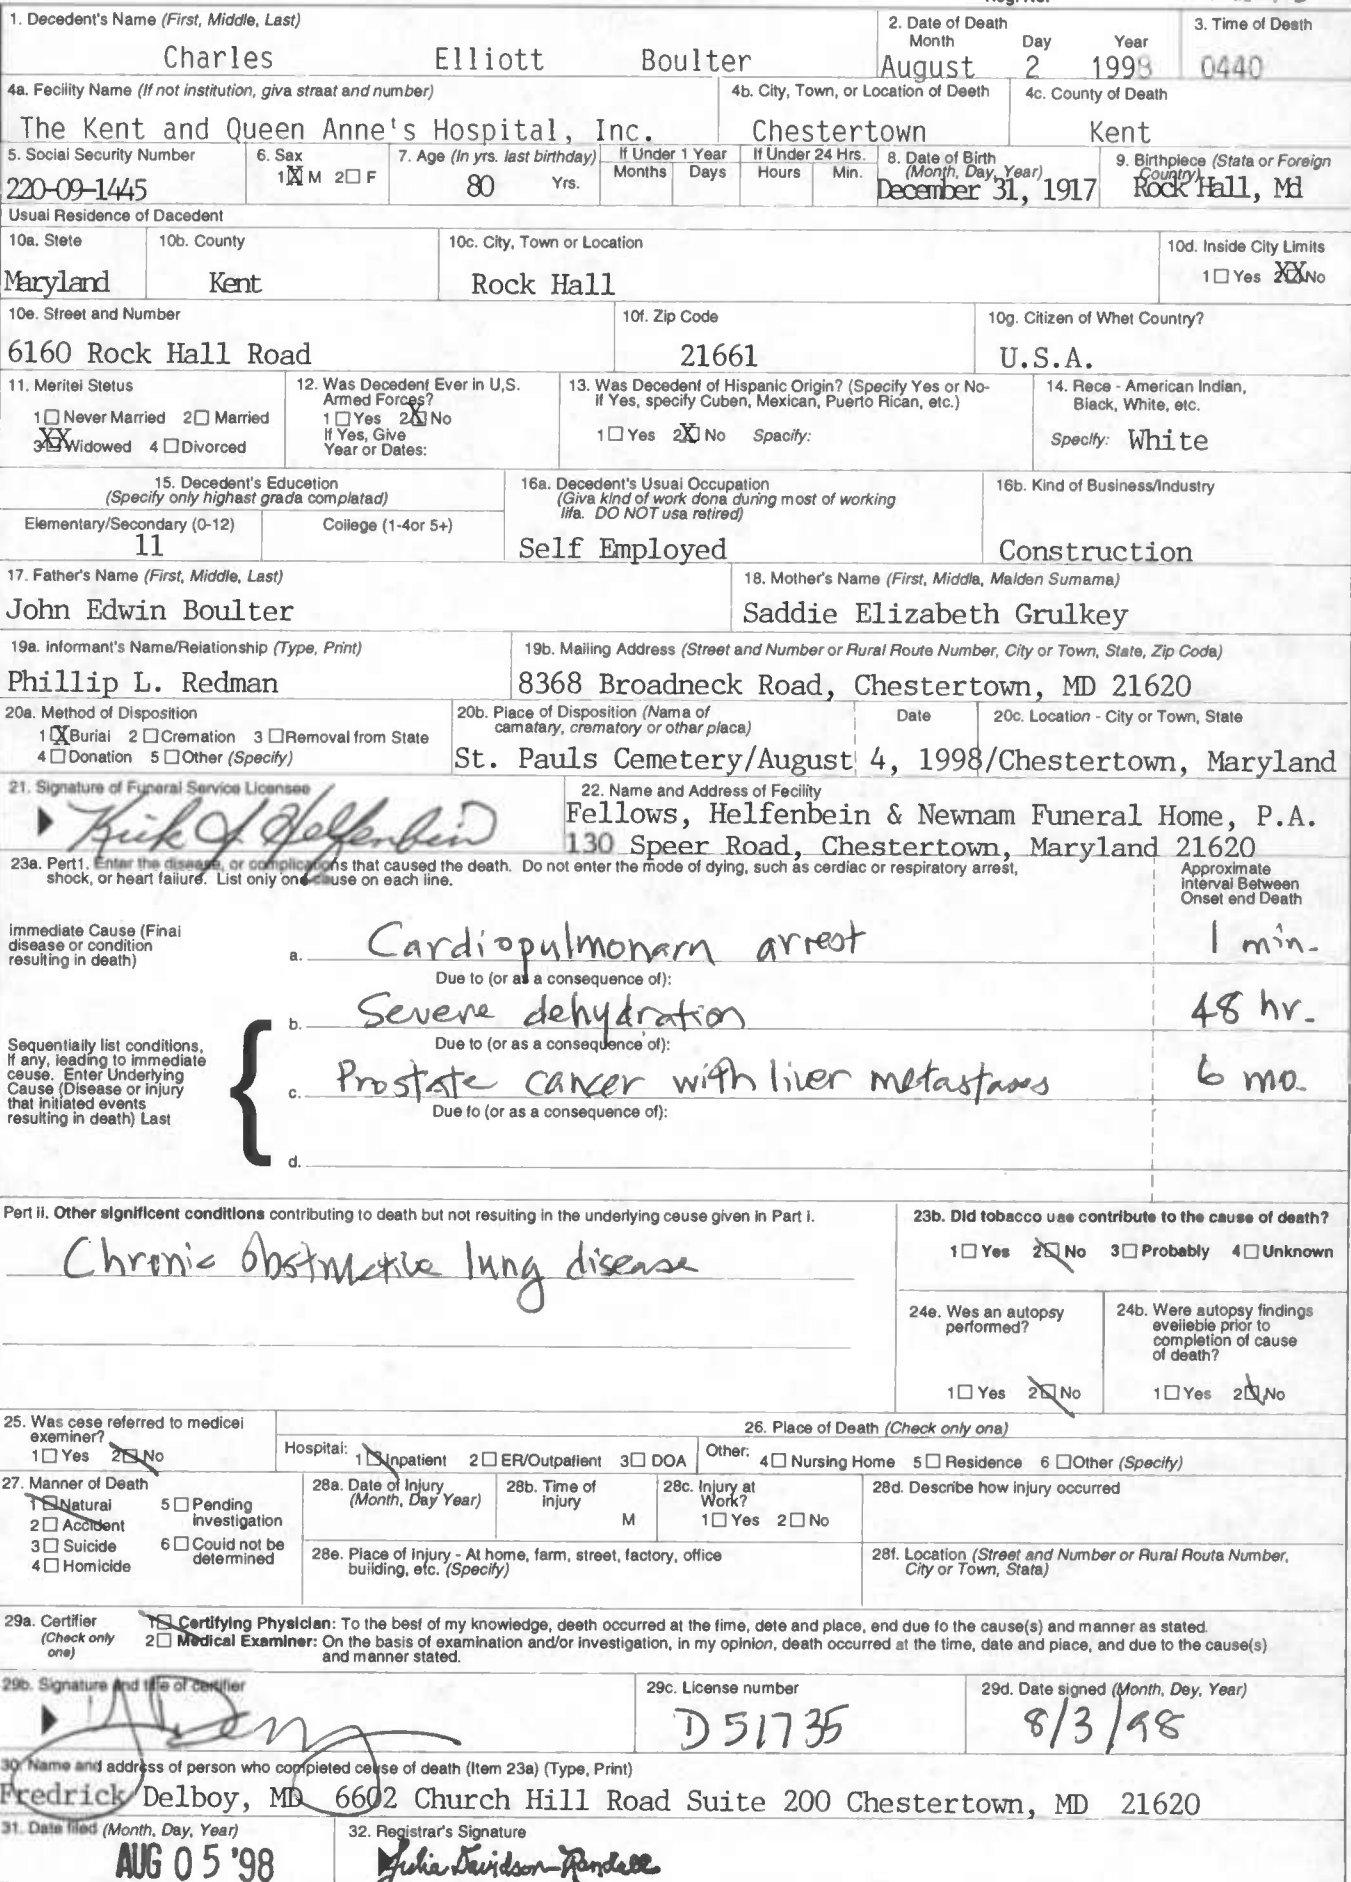 1. Decedent's Name (First, Middle, Last)
Charles Elliott Boulter
2. Date of Death
Month Day Year
August 2 1998
3. Time of Death
0440
4a. Fecility Name (If not institution, giva straat and number)
The Kent and Queen Anne's Hospital, Inc.
4b. City, Town, or Location of Deeth
Chestertown
4c. County of Death
Kent
5. Social Security Number
220-09-1445
6. Sax
1 X M 2 □ F
7. Age (In yrs. last birthday)
80 Yrs.
If Under 1 Year
Months Days
If Under 24 Hrs.
Hours Min.
8. Date of Birth
(Month, Day, Year)
December 31, 1917
9. Birthpiece (Stata or Foreign
Country)
Rock Hall, Md
Usuai Residence of Dacedent
10a. Stete
Maryland
10b. County
Kent
10c. City, Town or Location
Rock Hall
10d. Inside City Limits
1 □ Yes 2 XX No
10e. Street and Number
6160 Rock Hall Road
10f. Zip Code
21661
10g. Citizen of Whet Country?
U.S.A.
11. Meritei Stetus
1 □ Never Married 2 □ Married
3 XX Widowed 4 □ Divorced
12. Was Decedent Ever in U,S.
Armed Forces?
1 □ Yes 2 X No
If Yes, Give
Year or Dates:
13. Was Decedent of Hispanic Origin? (Specify Yes or No-
if Yes, specify Cuben, Mexican, Puerto Rican, etc.)
1 □ Yes 2 X No Spacify:
14. Rece - American Indian,
Black, White, etc.
Specify: White
15. Decedent's Educetion
(Specify only highast grada complatad)
Elementary/Secondary (0-12)
11
Coilege (1-4or 5+)
16a. Decedent's Usual Occupation
(Giva kind of work dona during most of working
lifa. DO NOT usa retired)
Self Employed
16b. Kind of Business/Industry
Construction
17. Father's Name (First, Middle, Last)
John Edwin Boulter
18. Mother's Name (First, Middla, Maiden Surnama)
Saddie Elizabeth Grulkey
19a. Informant's Name/Relationship (Type, Print)
Phillip L. Redman
19b. Mailing Address (Street and Number or Rural Route Number, City or Town, State, Zip Coda)
8368 Broadneck Road, Chestertown, MD 21620
20a. Method of Disposition
1 X Buriai 2 □ Cremation 3 □ Removal from State
4 □ Donation 5 □ Other (Specify)
20b. Place of Disposition (Nama of
camatary, crematory or othar placa)
Date
20c. Location - City or Town, State
St. Pauls Cemetery/August 4, 1998/Chestertown, Maryland
21. Signature of Funeral Service Licensee
Kirk J Helfenbein
22. Name and Address of Fecility
Fellows, Helfenbein & Newnam Funeral Home, P.A.
130 Speer Road, Chestertown, Maryland 21620
23a. Pert1. Enter the disease, or complications that caused the death. Do not enter the mode of dying, such as cerdiac or respiratory arrest,
shock, or heart failure. List only one cause on each line.
Approximate
Interval Between
Onset end Death
Immediate Cause (Finai
disease or condition
resulting in death)
a. Cardiopulmonary arrest 1 min.
Due to (or as a consequence of):
b. Severe dehydration 48 hr.
Due to (or as a consequence of):
Sequentially list conditions,
If any, leading to immediate
ceuse. Enter Underlying
Cause (Disease or injury
that initiated events
resulting in death) Last
c. Prostate cancer with liver metastases 6 mo.
Due to (or as a consequence of):
d.
Pert ii. Other significent conditions contributing to death but not resuiting in the underlying ceuse given in Part i.
Chronic obstructive lung disease
23b. Did tobacco use contribute to the cause of death?
1 □ Yes 2 □ No 3 □ Probably 4 □ Unknown
24e. Wes an autopsy
performed?
1 □ Yes 2 □ No
24b. Were autopsy findings
eveiieble prior to
completion of cause
of death?
1 □ Yes 2 □ No
25. Was cese referred to medicei
exeminer?
1 □ Yes 2 □ No
26. Place of Death (Check only ona)
Hospital: 1 □ Inpatient 2 □ ER/Outpatient 3 □ DOA
Other: 4 □ Nursing Home 5 □ Residence 6 □ Other (Specify)
27. Manner of Death
1 □ Naturai 5 □ Pending
investigation
2 □ Accident
3 □ Suicide 6 □ Could not be
determined
4 □ Homicide
28a. Date of Injury
(Month, Day Year)
28b. Time of
injury
M
28c. Injury at
Work?
1 □ Yes 2 □ No
28d. Describe how injury occurred
28e. Place of Injury - At home, farm, street, factory, office
building, etc. (Specify)
28f. Location (Street and Number or Rural Routa Number,
City or Town, Stata)
29a. Certifier
(Check only
one)
1 □ Certifying Physician: To the best of my knowledge, deeth occurred at the time, dete and place, end due to the cause(s) and manner as stated.
2 □ Medical Examiner: On the basis of examination and/or investigation, in my opinion, death occurred at the time, date and place, and due to the cause(s)
and manner stated.
29b. Signature and title of certifier
29c. License number
D51735
29d. Date signed (Month, Dey, Year)
8/3/98
30. Name and address of person who completed ceuse of death (Item 23a) (Type, Print)
Fredrick Delboy, MD 6602 Church Hill Road Suite 200 Chestertown, MD 21620
31. Date filed (Month, Day, Year)
AUG 05 '98
32. Registrar's Signature
Julia Davidson-Randall